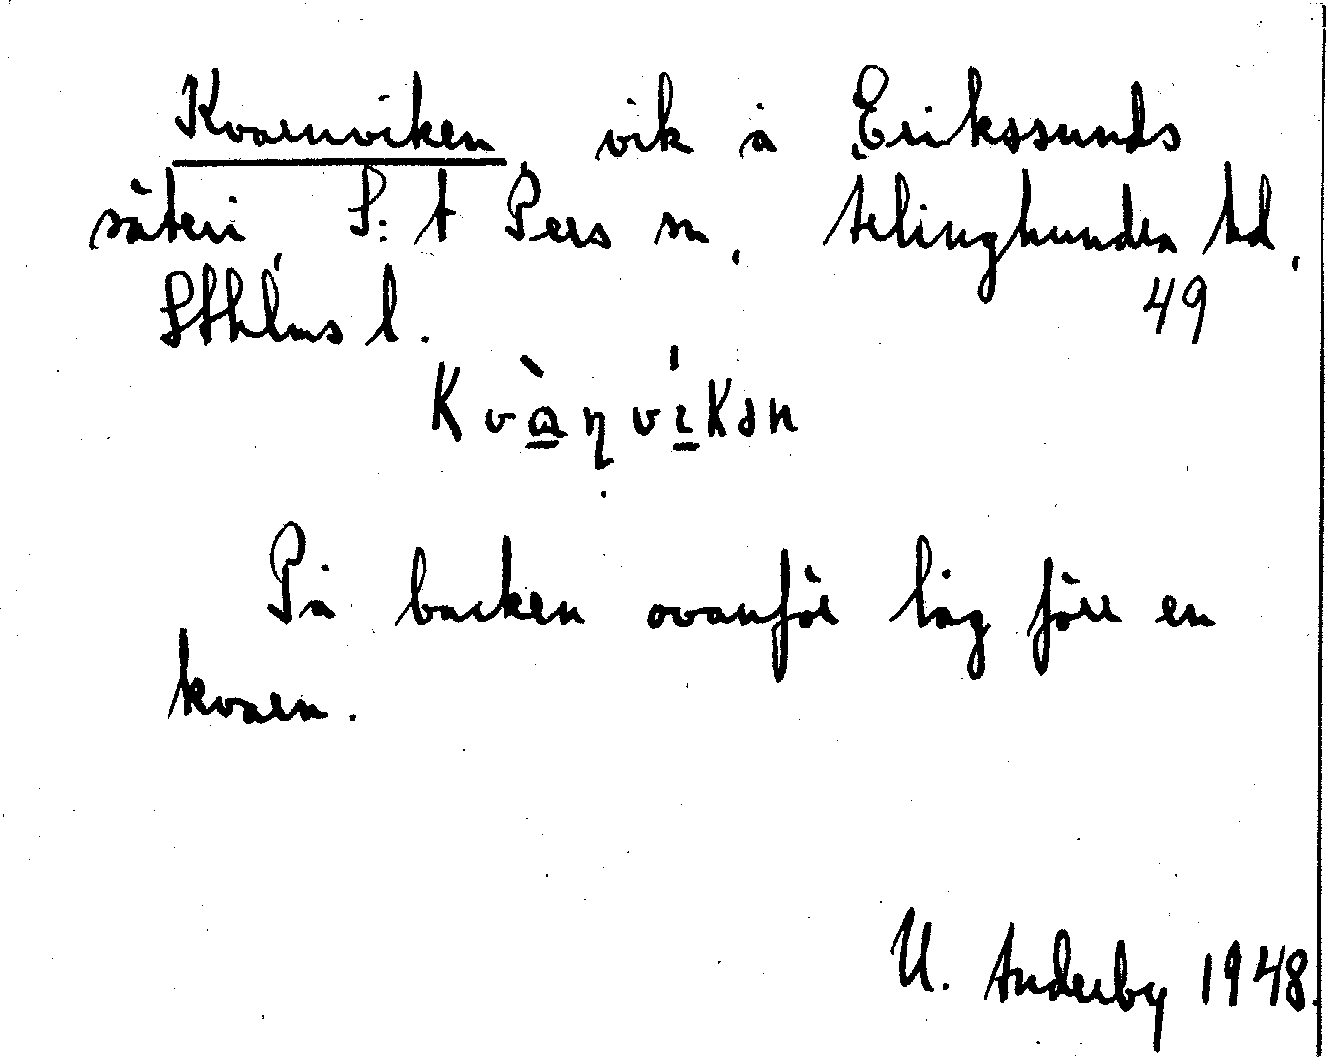 Kvarnviken, vik å Erikssunds
säteri, S:t Pers sn, Ærlinghundra hd,
Sthlms l. 49
Kvà̱ɳví̱kən
På backen ovanför låg förr en
kvarn.
U. Anderby 1948.